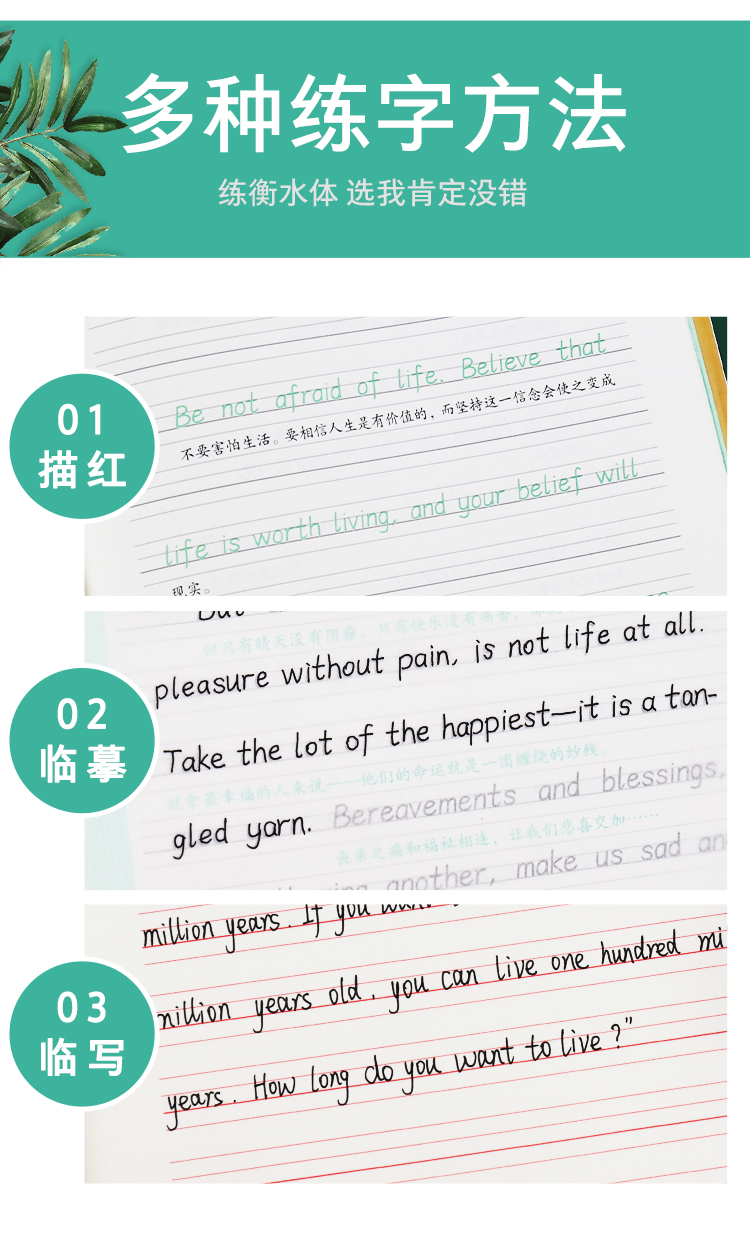 多种练字方法
练衡水体 选我肯定没错
01
描红
Be not afraid of life. Believe that
不要害怕生活。要相信人生是有价值的，而坚持这一信念会使之变成
life is worth living, and your belief will
现实。
02
临摹
But
但只有晴天没有阴霾，只有快乐没有痛苦，
pleasure without pain, is not life at all.
Take the lot of the happiest—it is a tan-
就拿最幸福的人来说——他们的命运就是一团缠绕的纱线。
gled yarn. Bereavements and blessings,
丧亲之痛和福祉相连，让我们悲喜交加……
another, make us sad an
03
临写
million years. If you want
million years old, you can live one hundred mi
years. How long do you want to live?"